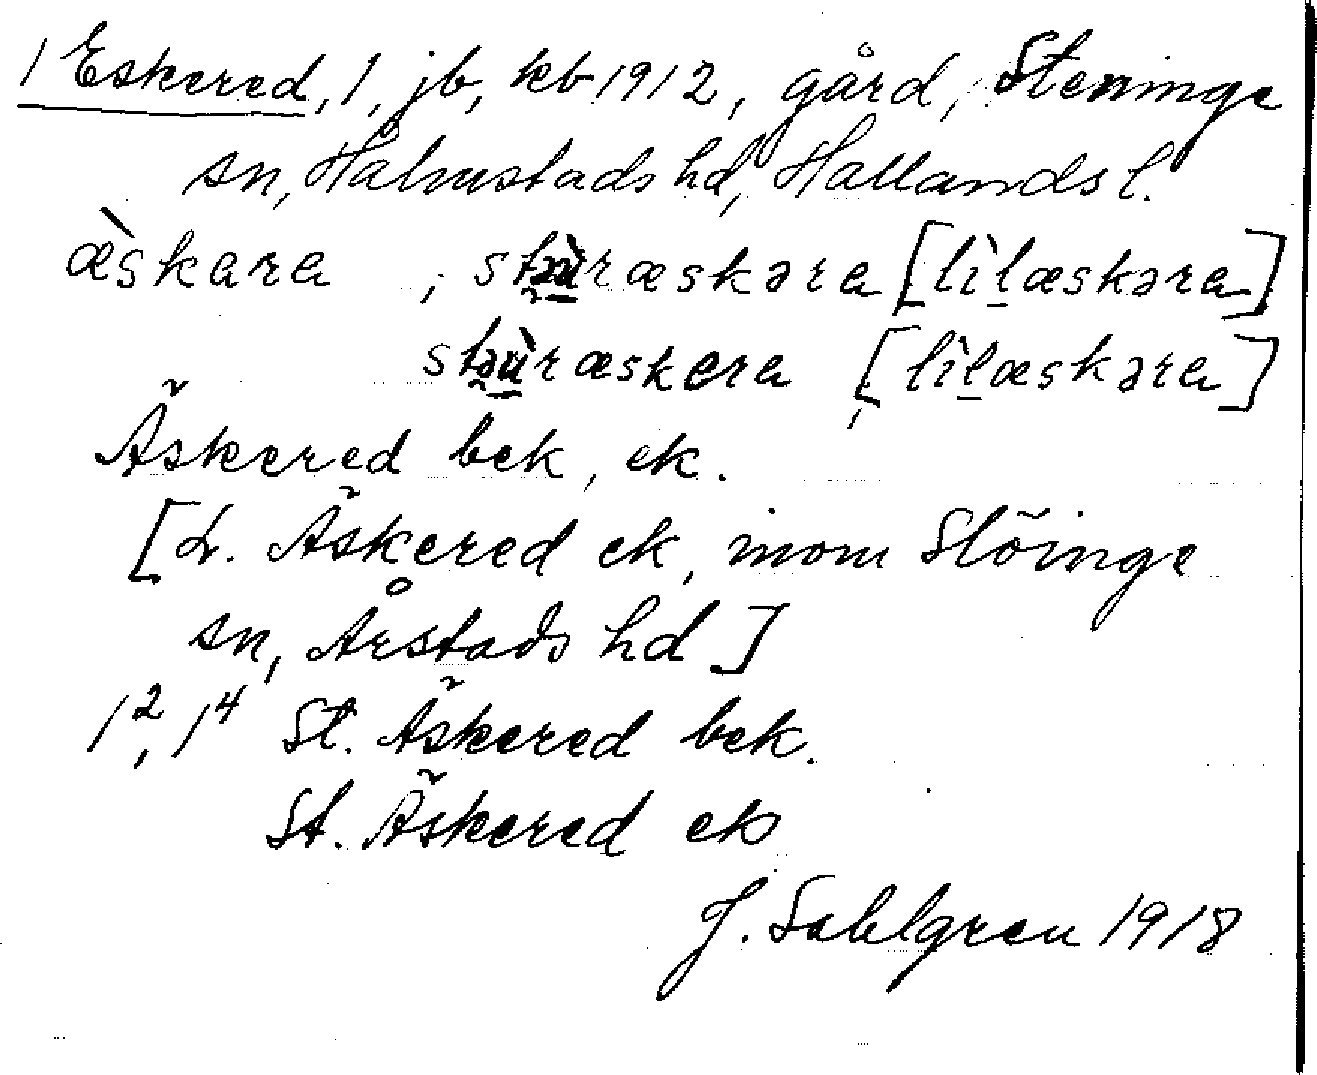 1 Eskered, 1, jb, kb 1912, gård, Steninge
sn, Halmstads hd, Hallands l.
æ̀skara , stəùræskəra [lìlæskəra]
stəùræskera [lìlæskəra]
Äskered bek, ek.
[L. Äskered ek, inom Slöinge
sn, Årstads hd]
1², 1⁴ St. Äskered bek.
St. Äskered ek
J. Sahlgren 1918